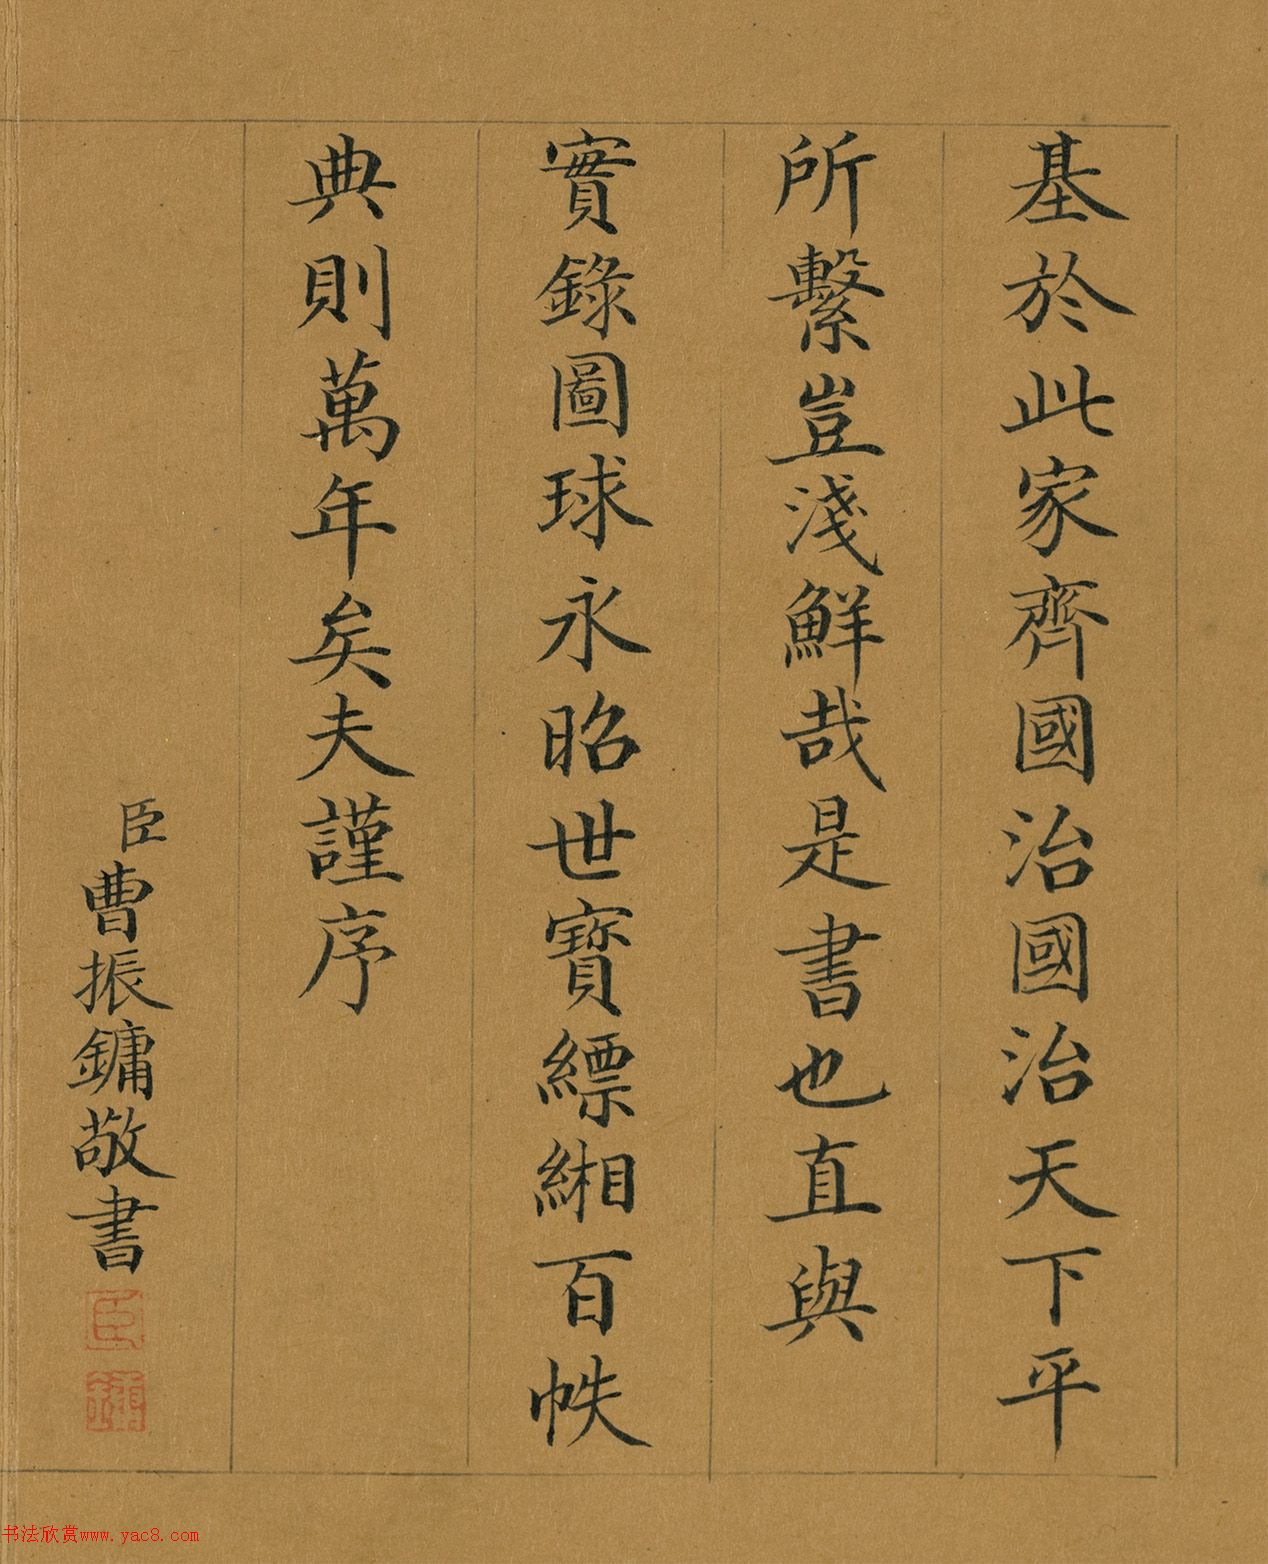 基於此家齊國治國治天下平
所繫豈淺鮮哉是書也直與
實錄圖球永昭世寶縹緗百帙
典則萬年矣夫謹序
臣曹振鏞敬書
臣
书法欣赏www.yac8.com